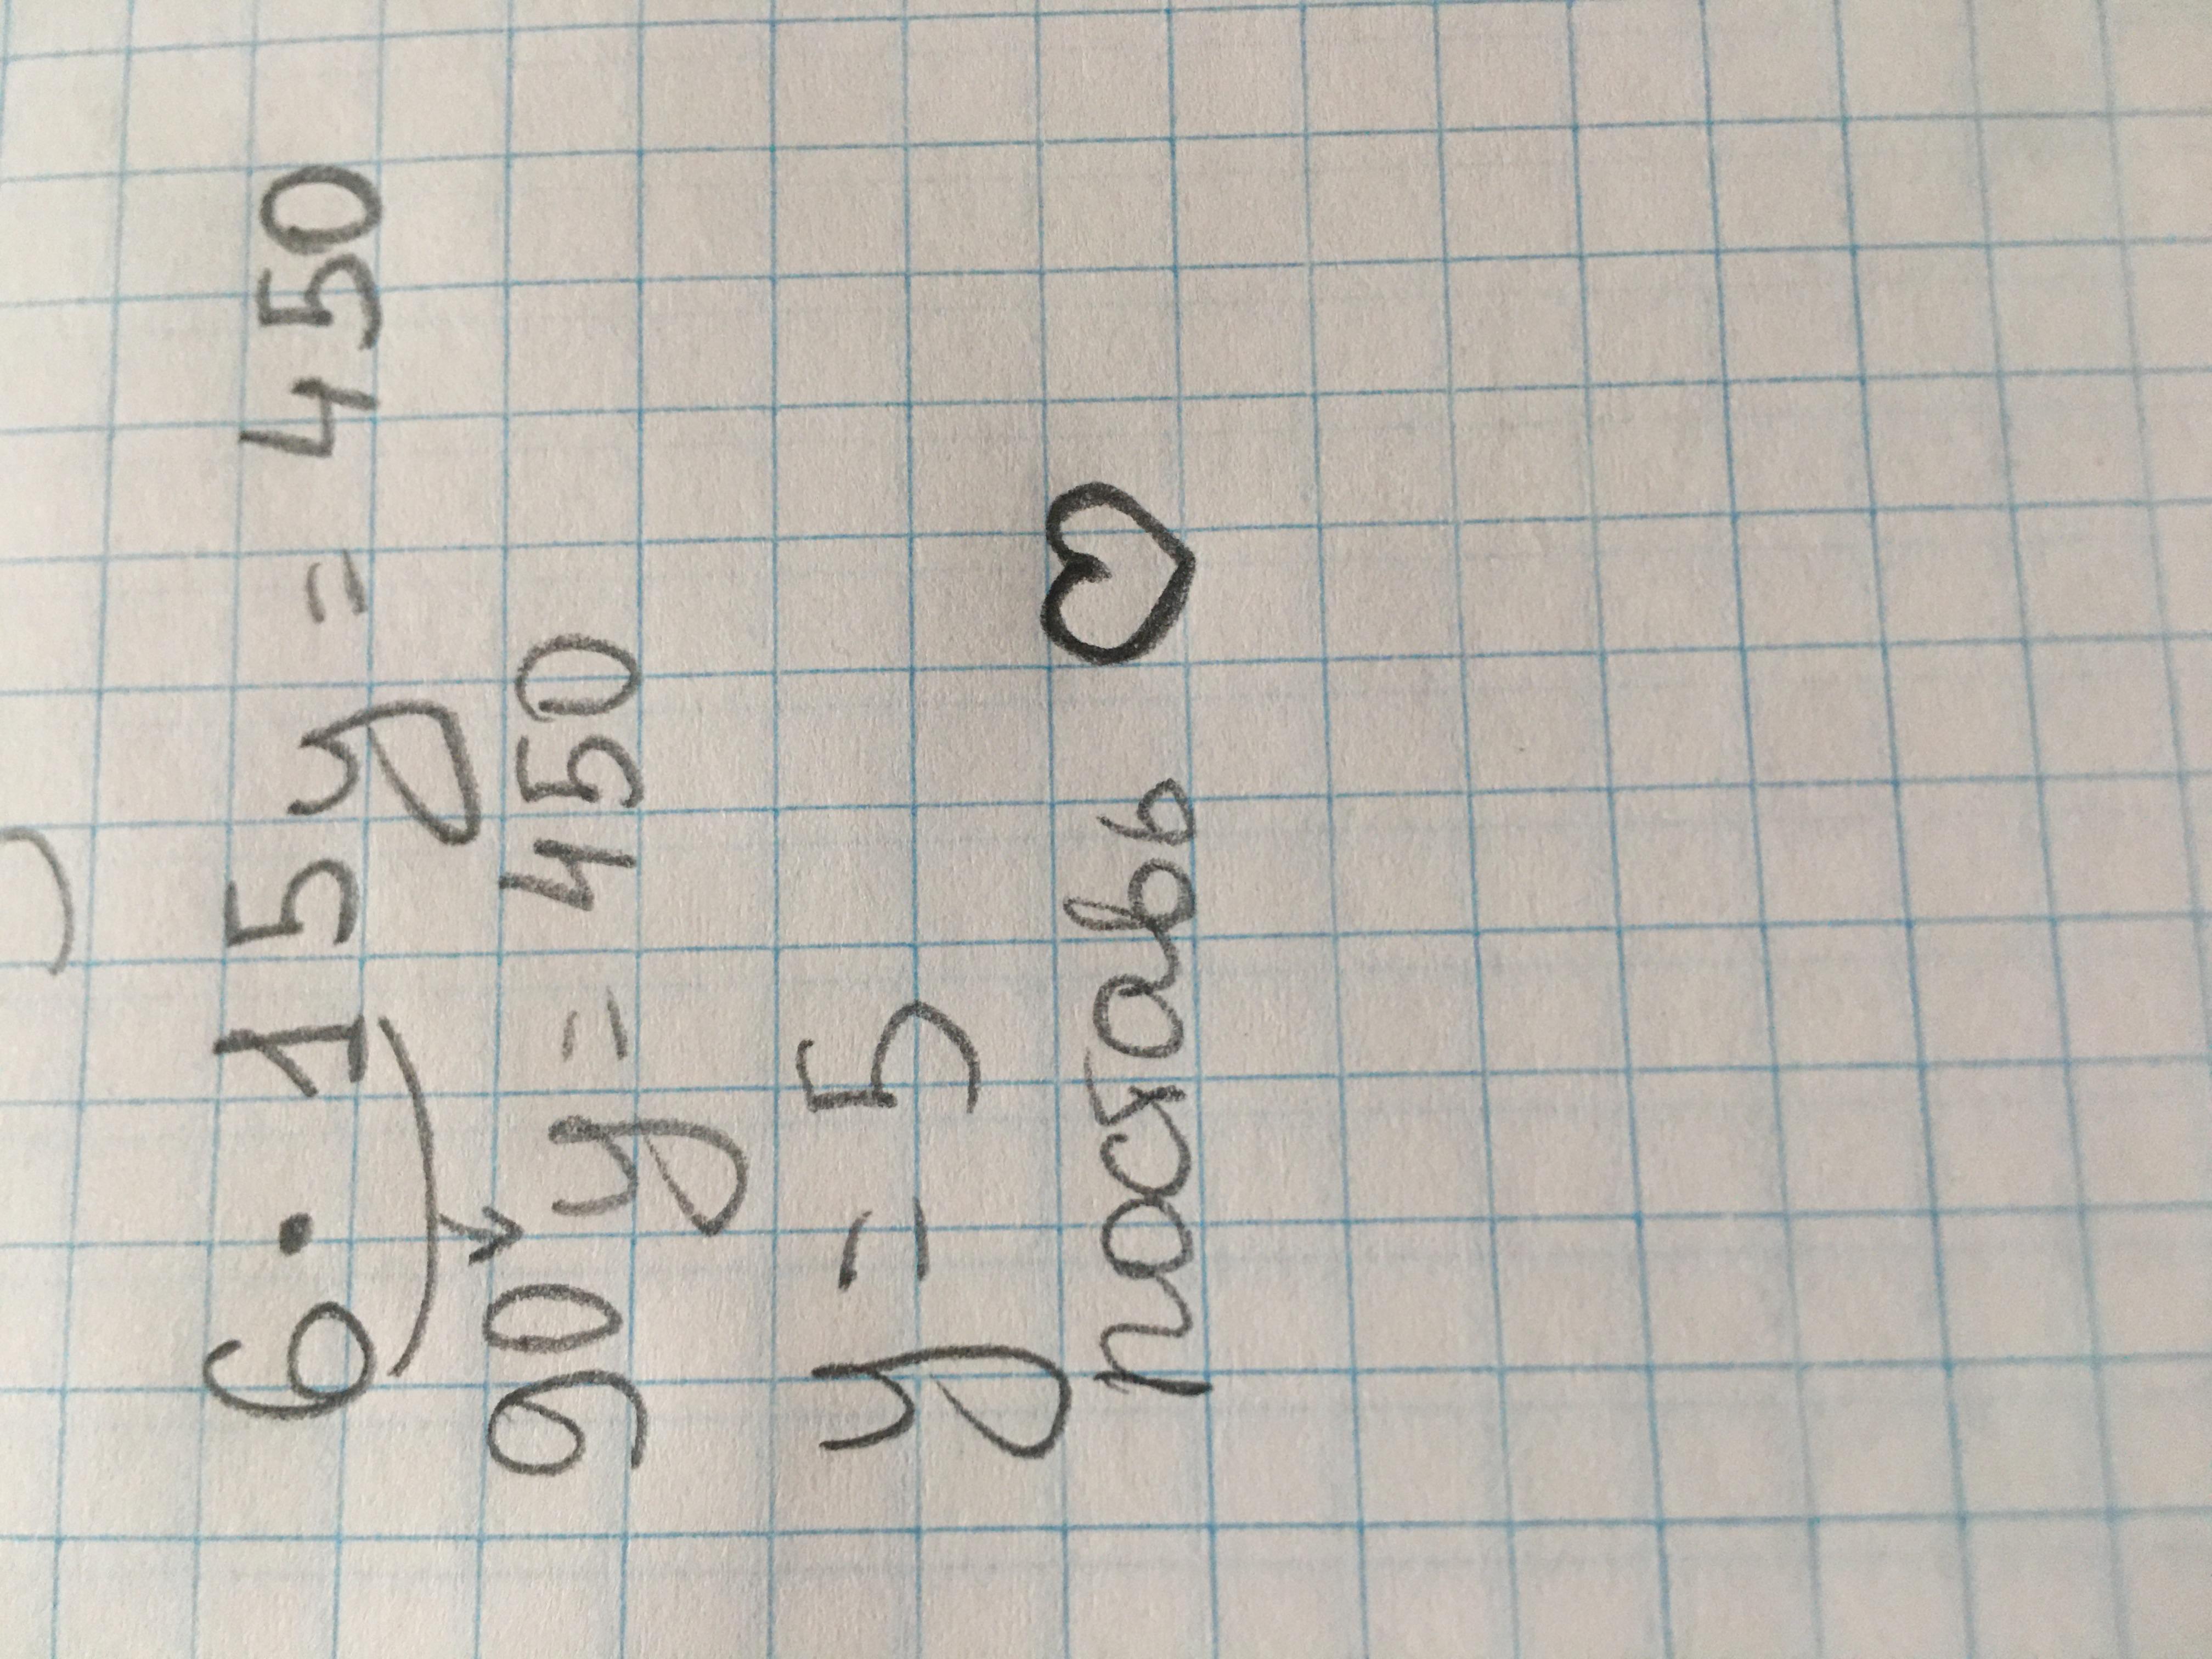 6 • 15y = 450
90y = 450
y = 5
поставь ♡